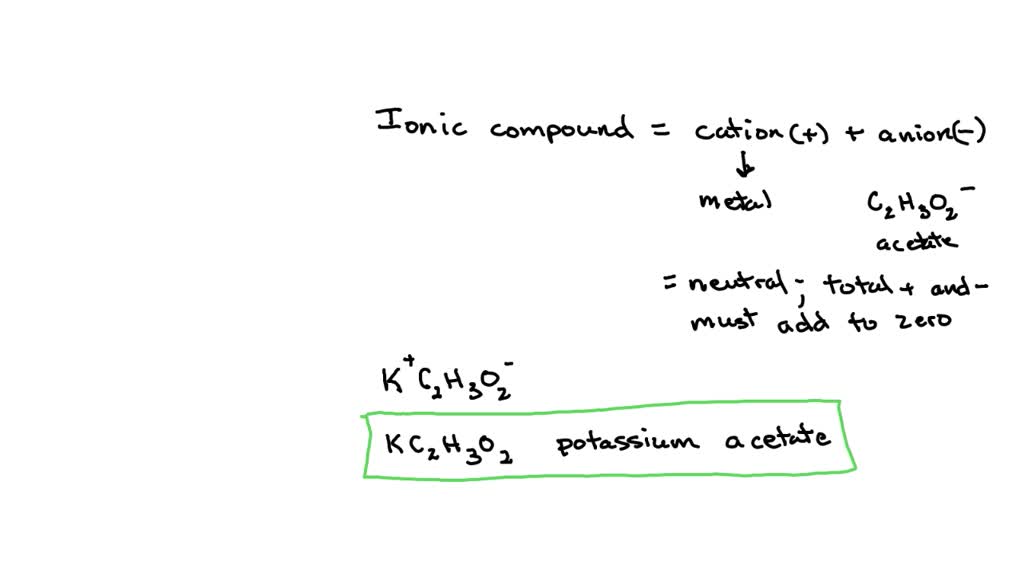 Ionic compound = cation (+) + anion (-)
↓
metal C₂H₃O₂⁻
acetate
= neutral; total + and -
must add to zero
K⁺C₂H₃O₂⁻
KC₂H₃O₂ potassium acetate